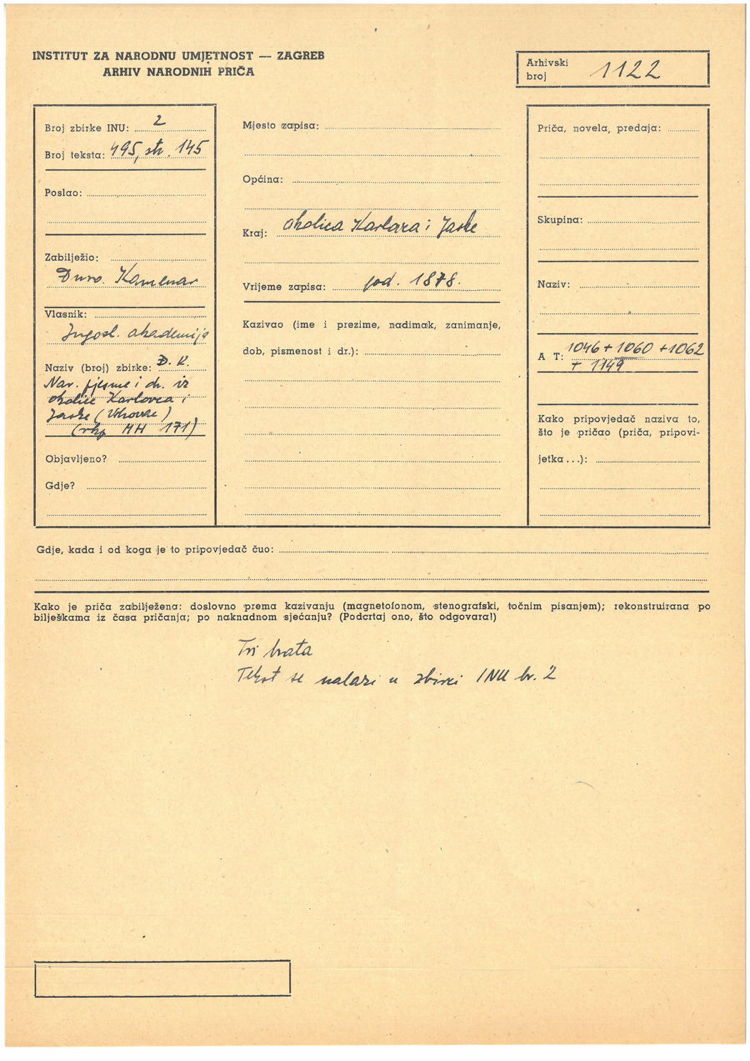 INSTITUT ZA NARODNU UMJETNOST — ZAGREB
ARHIV NARODNIH PRIČA
Arhivski
broj 1122
Broj zbirke INU: 2
Broj teksta: 495, str. 145
Poslao:
Zabilježio:
Đuro Kamenar
Vlasnik:
Jugosl. akademija
Naziv (broj) zbirke: Đ. K.
Nar. pjesme i dr. iz
okolice Karlovca i
Jaske (Vrhovac)
(rkp MH 171)
Objavljeno?
Gdje?
Mjesto zapisa:
Općina:
Kraj: okolica Karlovca i Jaske
Vrijeme zapisa: god. 1878.
Kazivao (ime i prezime, nadimak, zanimanje,
dob, pismenost i dr.):
Priča, novela, predaja:
Skupina:
Naziv:
A T: 1046 + 1060 + 1062
+ 1149
Kako pripovjedač naziva to,
što je pričao (priča, pripovi-
jetka...):
Gdje, kada i od koga je to pripovjedač čuo:
Kako je priča zabilježena: doslovno prema kazivanju (magnetofonom, stenografski, točnim pisanjem); rekonstruirana po
bilješkama iz časa pričanja; po naknadnom sjećanju? (Podcrtaj ono, što odgovara!)
Tri brata
Tekst se nalazi u zbirci INU br. 2